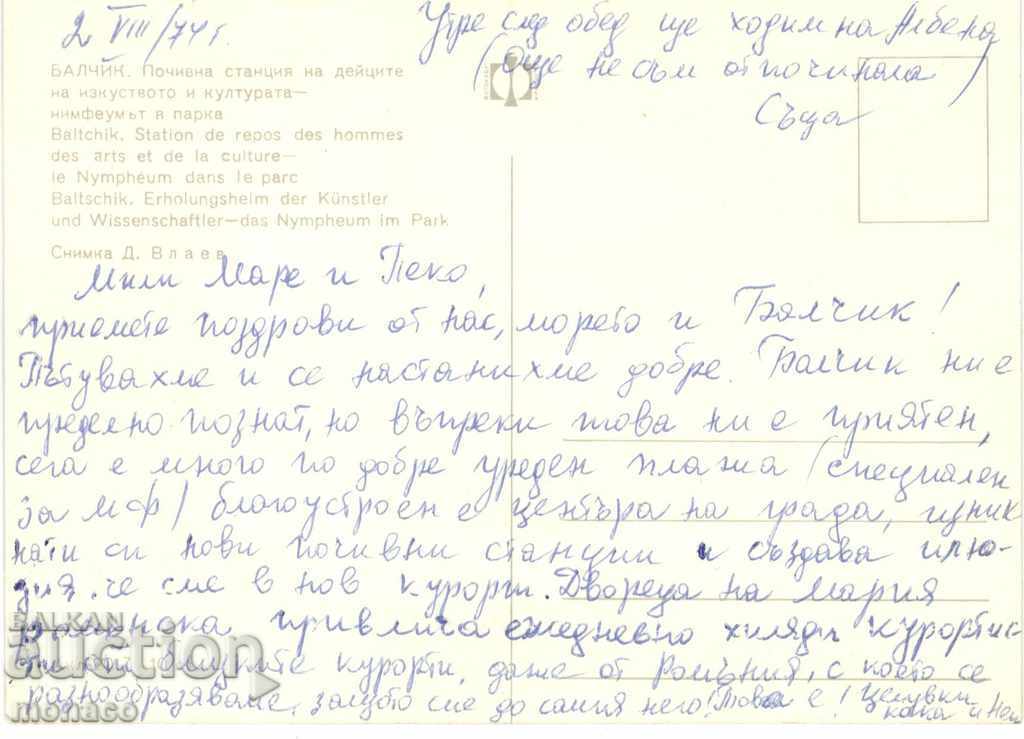 2 VIII/74 г.
Утре след обед ще ходим на Албена
(още не съм отпочинала)
Съща
БАЛЧИК. Почивна станция на дейците
на изкуството и културата—
нимфеумът в парка
Baltchik. Station de repos des hommes
des arts et de la culture—
le Nymphéum dans le parc
Baltschik. Erholungsheim der Künstler
und Wissenschaftler—das Nympheum im Park
Снимка Д. Влаев
Мили Маре и Пеко,
приемете поздрави от нас, морето и Балчик!
Пътувахме и се настанихме добре. Балчик ни е
пределно познат, но въпреки това ни е приятен,
сега е много по добре уреден плажа (специален
за МФ) благоустроен е центъра на града, изник
нати са нови почивни станции и създава илю-
зия, че сме в нов курорт. Двореца на Мария
привлича ежедневно хиляди курортис
ти от близките курорти, даже от Румъния, с което се
разнообразяваме, защото сме до самия него! Това е! Целувки
кака и
BALKAN
auction
monaco